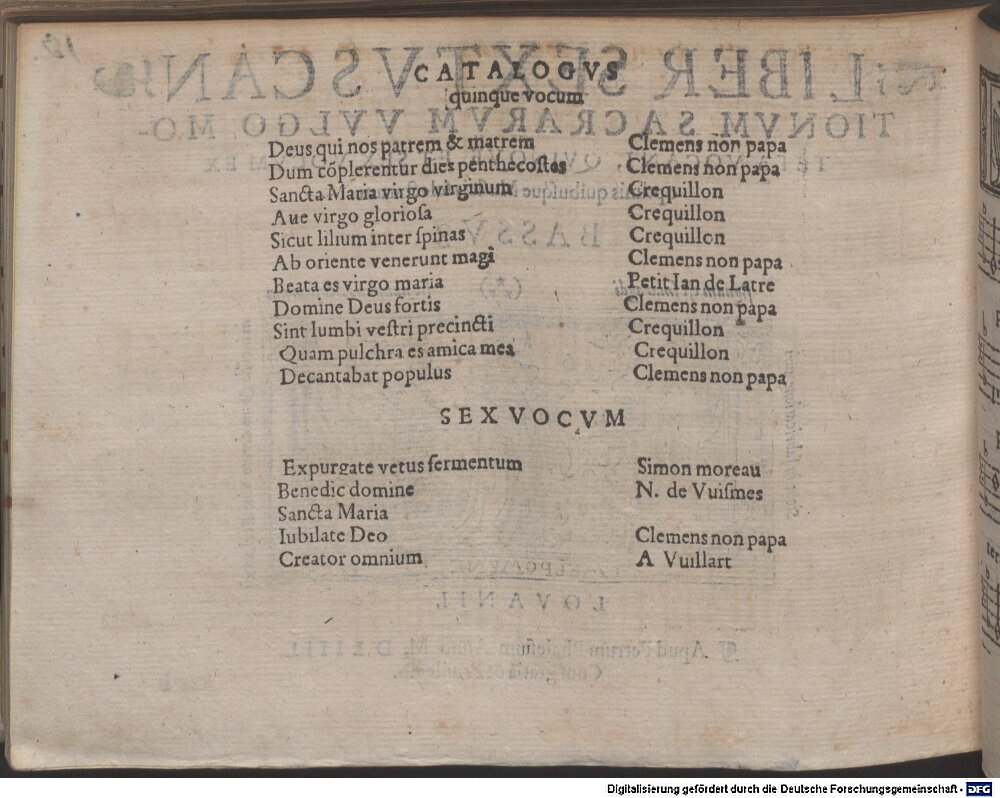 CATALOGVS
quinque vocum
Deus qui nos patrem & matrem Clemens non papa
Dum cõplerentur dies penthecoſtes Clemens non papa
Sancta Maria virgo virginum Crequillon
Aue virgo glorioſa Crequillon
Sicut lilium inter ſpinas Crequillon
Ab oriente venerunt magi Clemens non papa
Beata es virgo maria Petit Ian de Latre
Domine Deus fortis Clemens non papa
Sint lumbi veſtri precincti Crequillon
Quam pulchra es amica mea Crequillon
Decantabat populus Clemens non papa
SEX VOCVM
Expurgate vetus fermentum Simon moreau
Benedic domine N. de Vuiſmes
Sancta Maria
Iubilate Deo Clemens non papa
Creator omnium A Vuillart
Digitalisierung gefördert durch die Deutsche Forschungsgemeinschaft - DFG